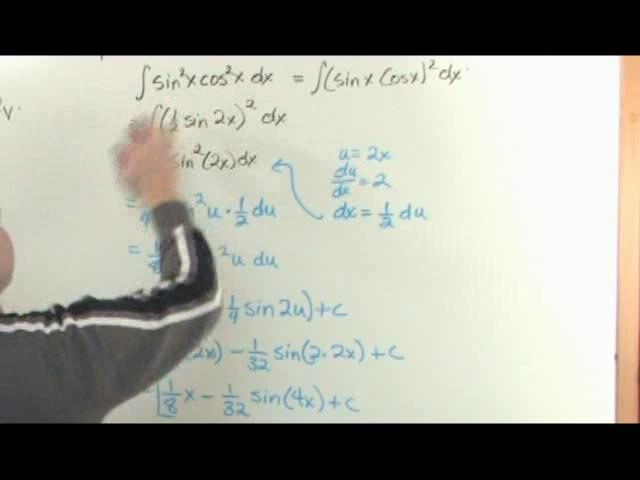 ∫sin²x cos²x dx = ∫(sin x cos x)² dx
∫(½ sin 2x)² dx
sin²(2x) dx
u = 2x
du/dx = 2
dx = ½ du
= ² u · ½ du
= 1/8 ² u du
¼ sin 2u) + c
2x) − 1/32 sin(2·2x) + c
= 1/8 x − 1/32 sin(4x) + c
v.